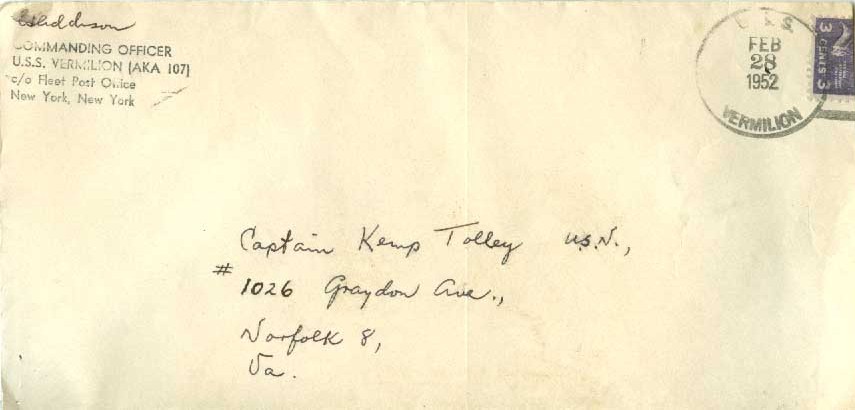 COMMANDING OFFICER
U.S.S. VERMILION (AKA 107)
c/o Fleet Post Office
New York, New York
U.S.S.
FEB
28
1952
VERMILION
3 CENTS 3
Captain Kemp Tolley U.S.N.,
#
1026 Graydon Ave.,
Norfolk 8,
Va.